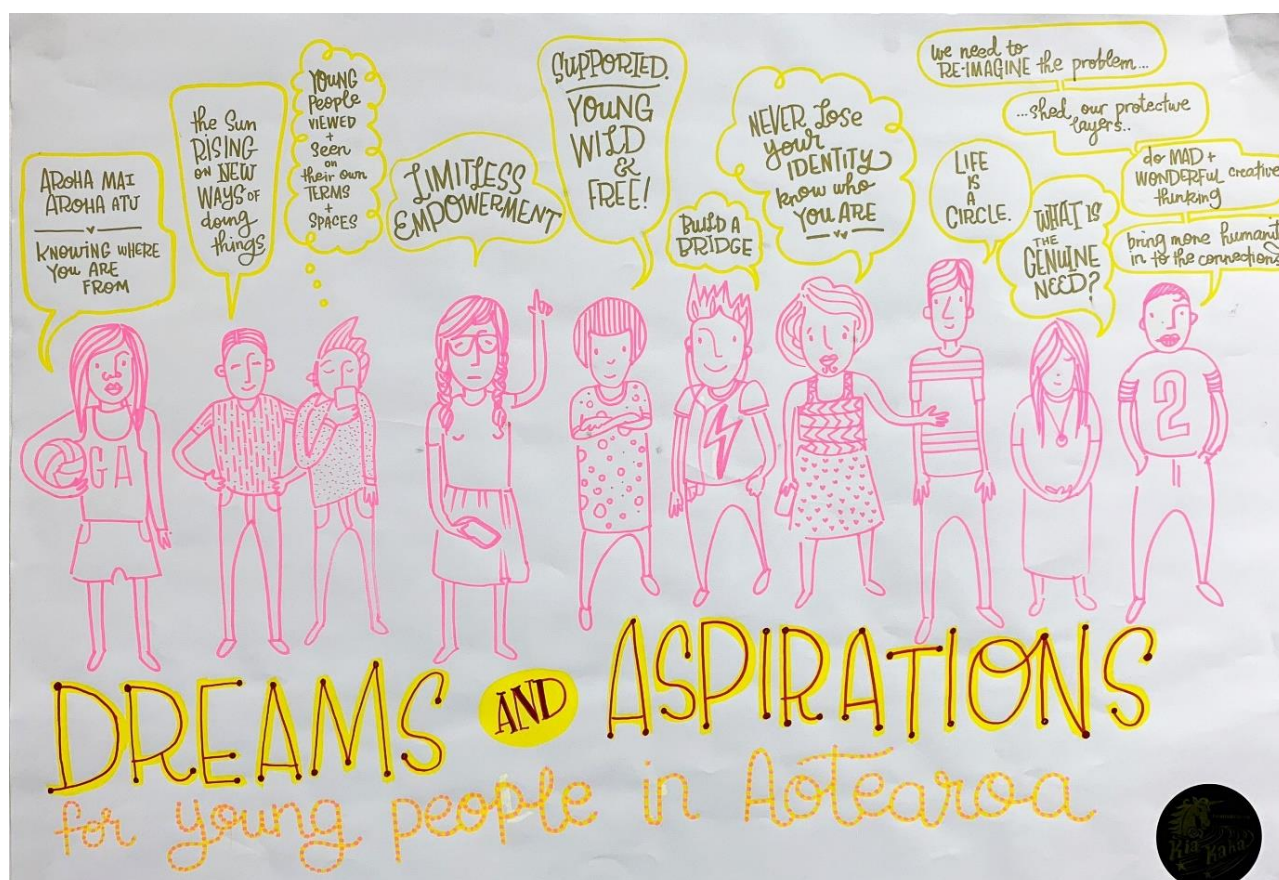 AROHA MAI
AROHA ATU
KNOWING WHERE
YOU ARE
FROM
the Sun
RISING
ON NEW
WAYS OF
doing
things
YOUNG
People
VIEWED
+
Seen
on
their own
TERMS
+
SPACES
LIMITLESS
EMPOWERMENT
SUPPORTED.
YOUNG
WILD
&
FREE!
BUILD A
BRIDGE
NEVER Lose
your
IDENTITY
know who
YOU ARE
LIFE
IS
A
CIRCLE.
WHAT IS
THE
GENUINE
NEED?
we need to
RE-IMAGINE the problem...
...shed our protective
layers..
do MAD +
WONDERFUL creative
thinking
bring more humanit
in to the connections
GA
2
DREAMS AND ASPIRATIONS
for young people in Aotearoa
Kia Kaha